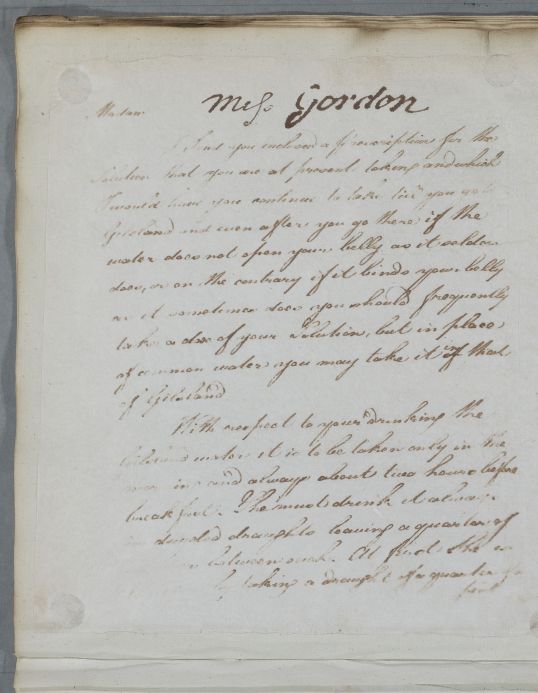 Miss Gordon
Madam
I send you inclosed a prescription for the
Solution that you are at present taking and which
I would have you continue to take till you go to
Gilsland and even after you go there if the
water does not open your belly as it seldom
does, or on the contrary if it binds your belly
as it sometimes does you should frequently
take a dose of your Solution, but in place
of common water you may take it in that
of Gilsland
With respect to your drinking the
Gilsland water it is to be taken only in the
morning and always about two hours before
breakfast. She must drink it always
divided draughts leaving a quarter of
between each. At first she
by taking a draught of a quarter of a
pint